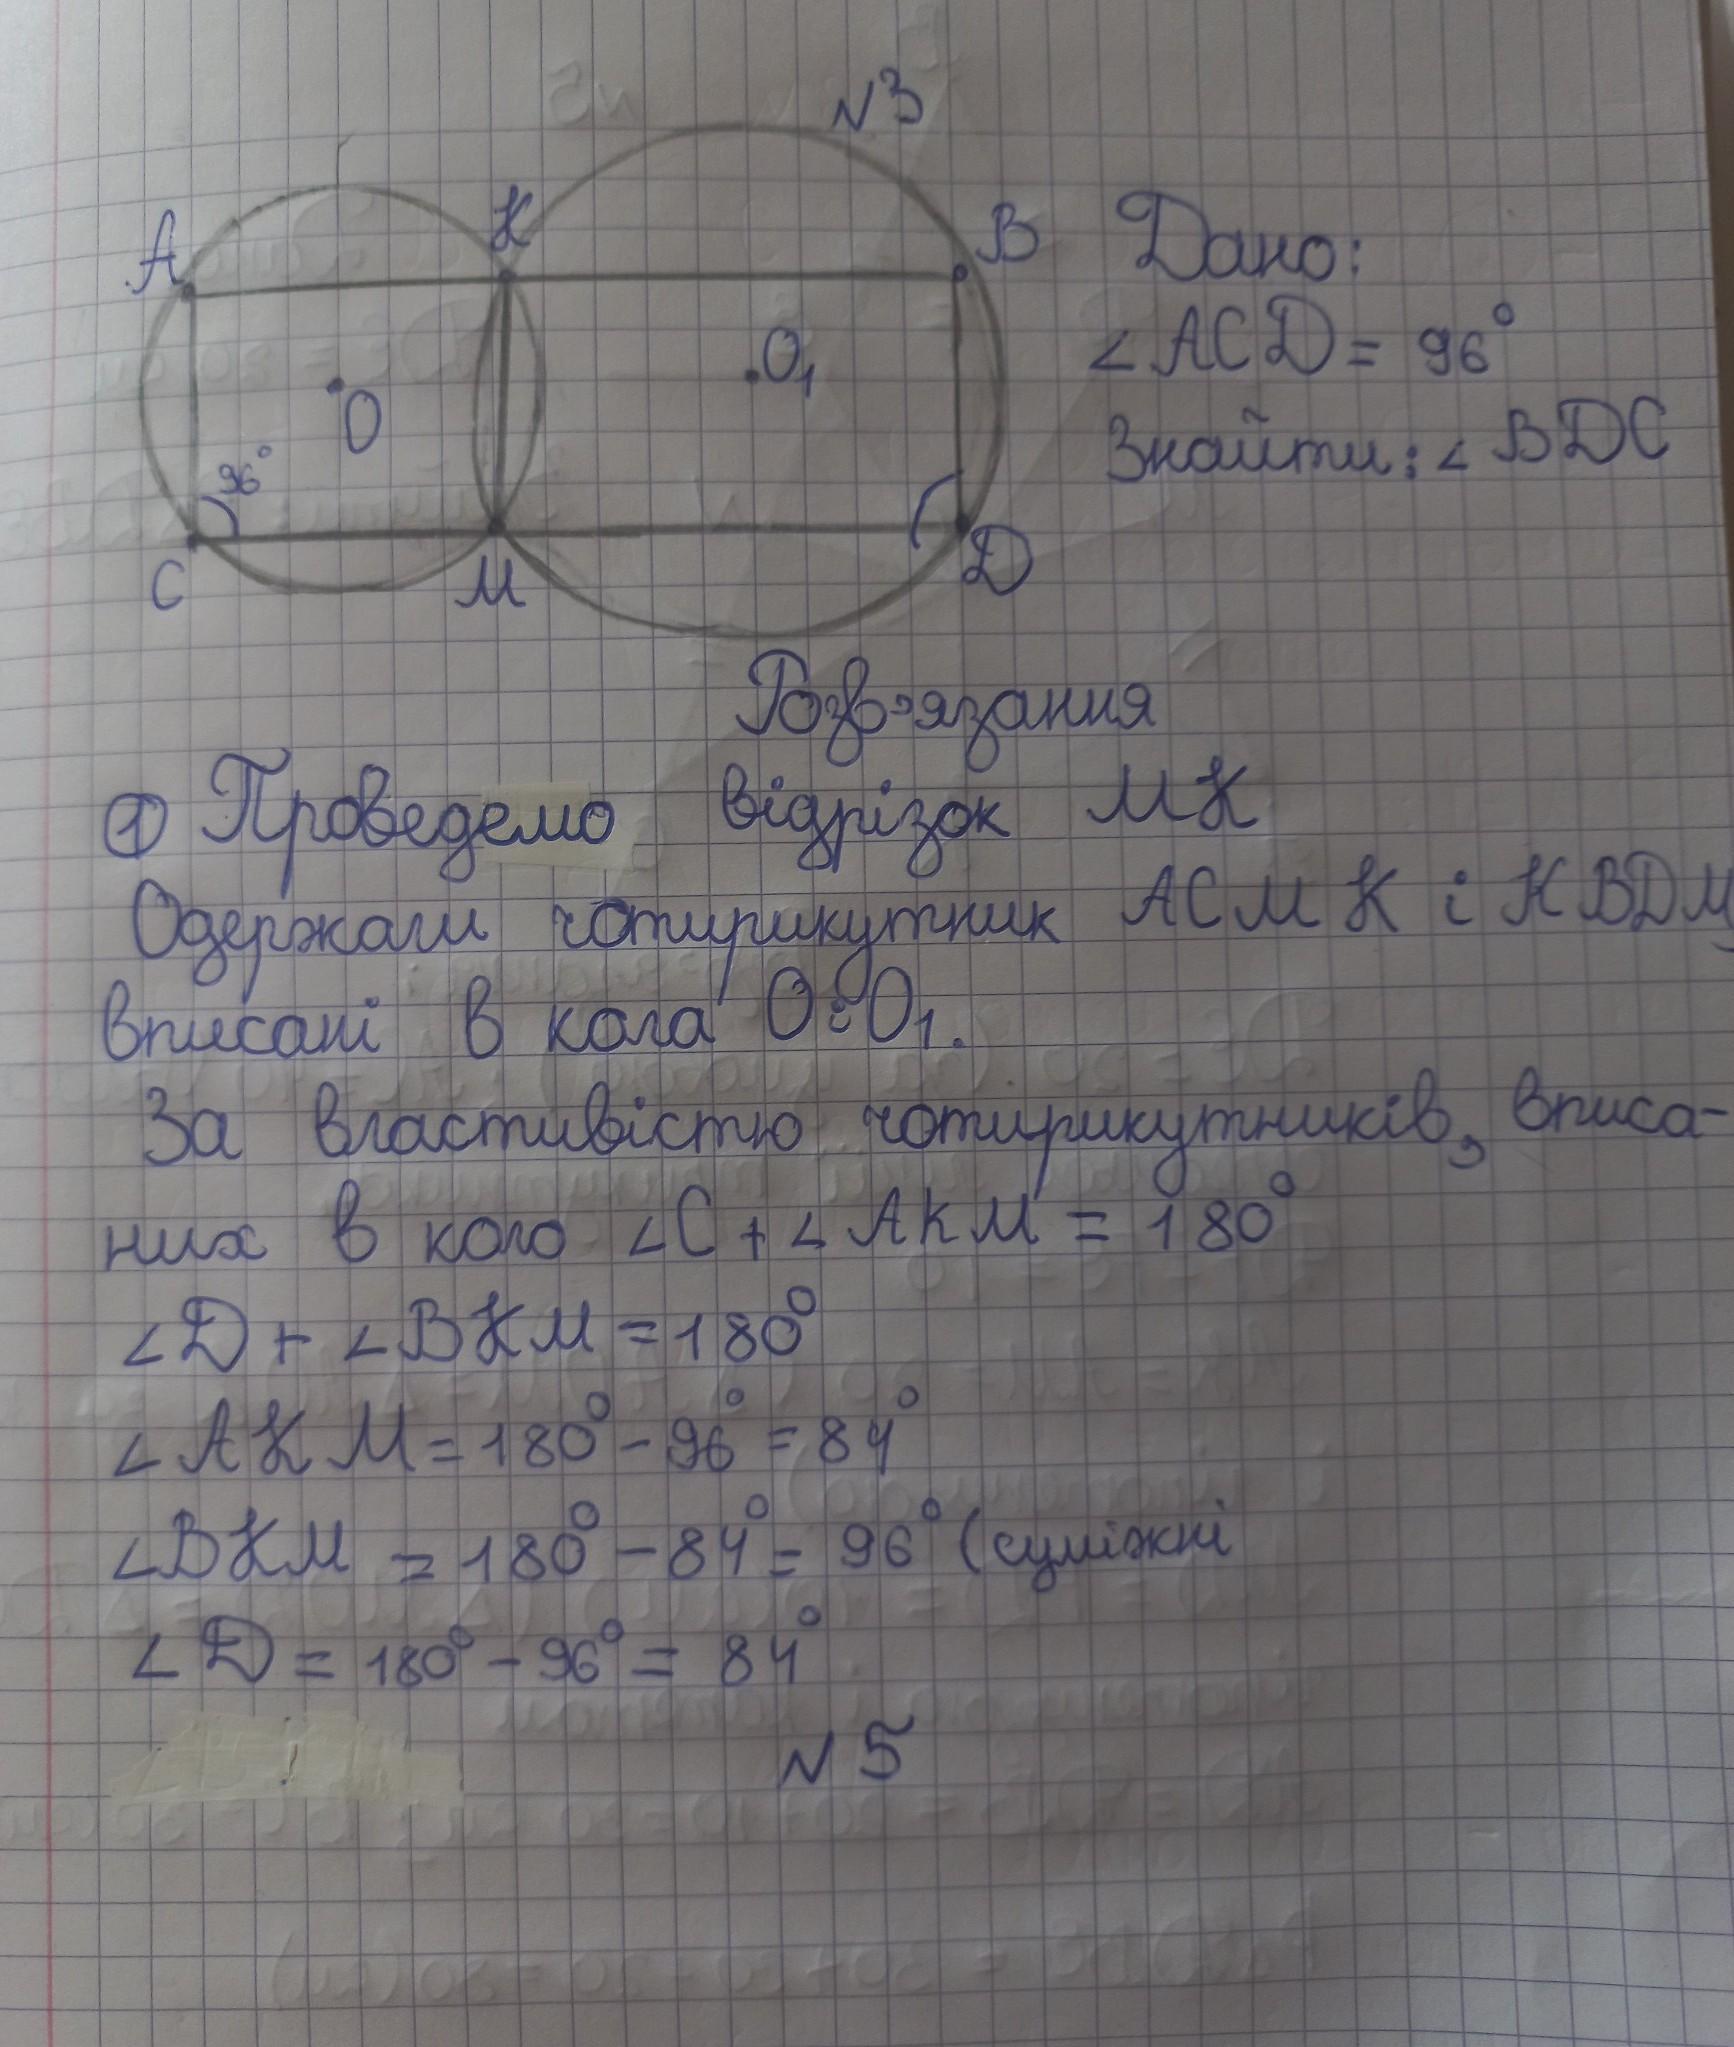 N3
A
K
B
Дано:
∠ACD = 96°
Знайти: ∠BDC
O
O₁
96°
C
M
D
Розв'язання
① Проведемо відрізок MK
Одержали чотирикутник ACMK і KBDM,
вписані в кола O і O₁.
За властивістю чотирикутників, вписа-
них в коло ∠C + ∠AKM = 180°
∠D + ∠BKM = 180°
∠AKM = 180° - 96° = 84°
∠BKM = 180° - 84° = 96° (суміжні
∠D = 180° - 96° = 84°
N5